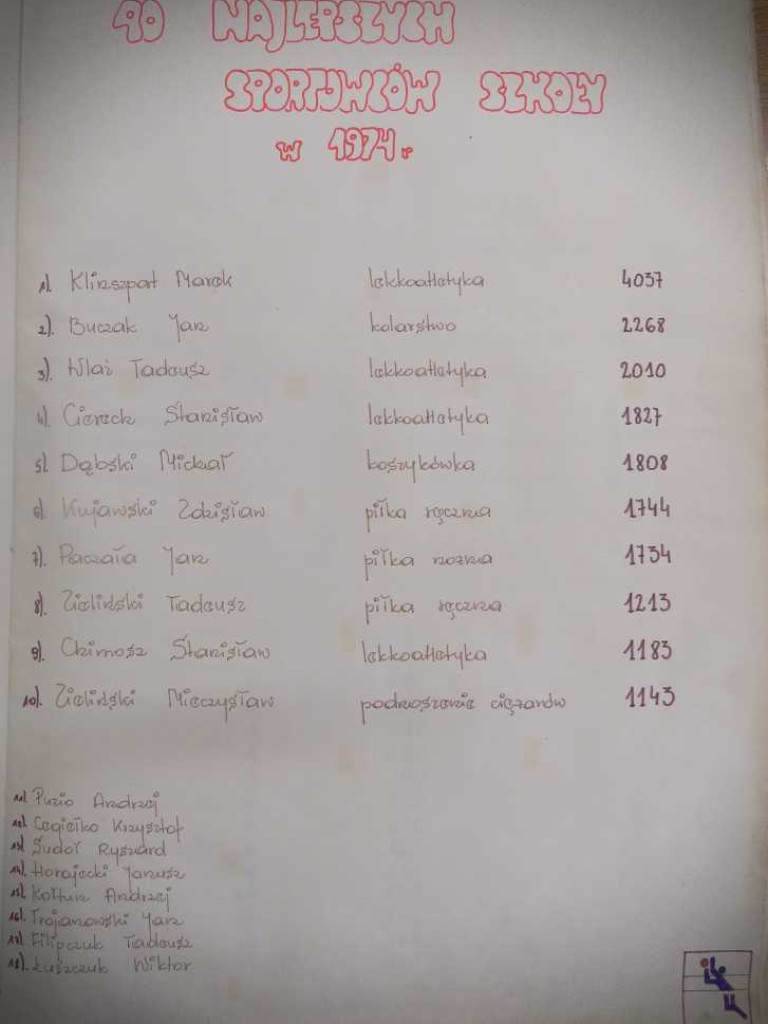 10 NAJLEPSZYCH
SPORTOWCÓW SZKOŁY
w 1974r
1). Klinszport Marek lekkoatletyka 4037
2). Buczak Jan kolarstwo 2268
3). Wlaź Tadeusz lekkoatletyka 2010
4). Cierech Stanisław lekkoatletyka 1827
5). Dąbski Michał koszykówka 1808
6). Kujawski Zdzisław piłka ręczna 1744
7). Paczała Jan piłka nożna 1734
8). Zieliński Tadeusz piłka ręczna 1213
9). Chimosz Stanisław lekkoatletyka 1183
10). Zieliński Mieczysław podnoszenie ciężarów 1143
11). Puzio Andrzej
12). Cegiełko Krzysztof
13). Sudoł Ryszard
14). Horajecki Janusz
15). Kołtun Andrzej
16). Trojanowski Jan
17). Filipczuk Tadeusz
18). Łuszczuk Wiktor